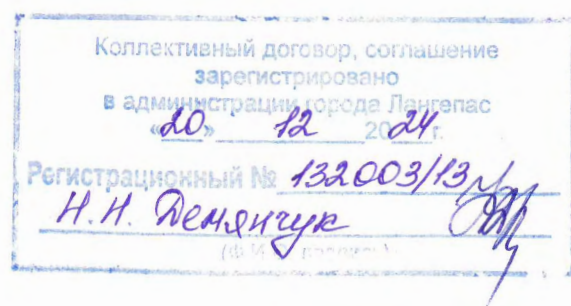 Коллективный договор, соглашение
зарегистрировано
в администрации города Лангепас
«20» 12 2024г.
Регистрационный № 132003/13
Н.Н. Демянчук
(Ф.И.О., подпись)